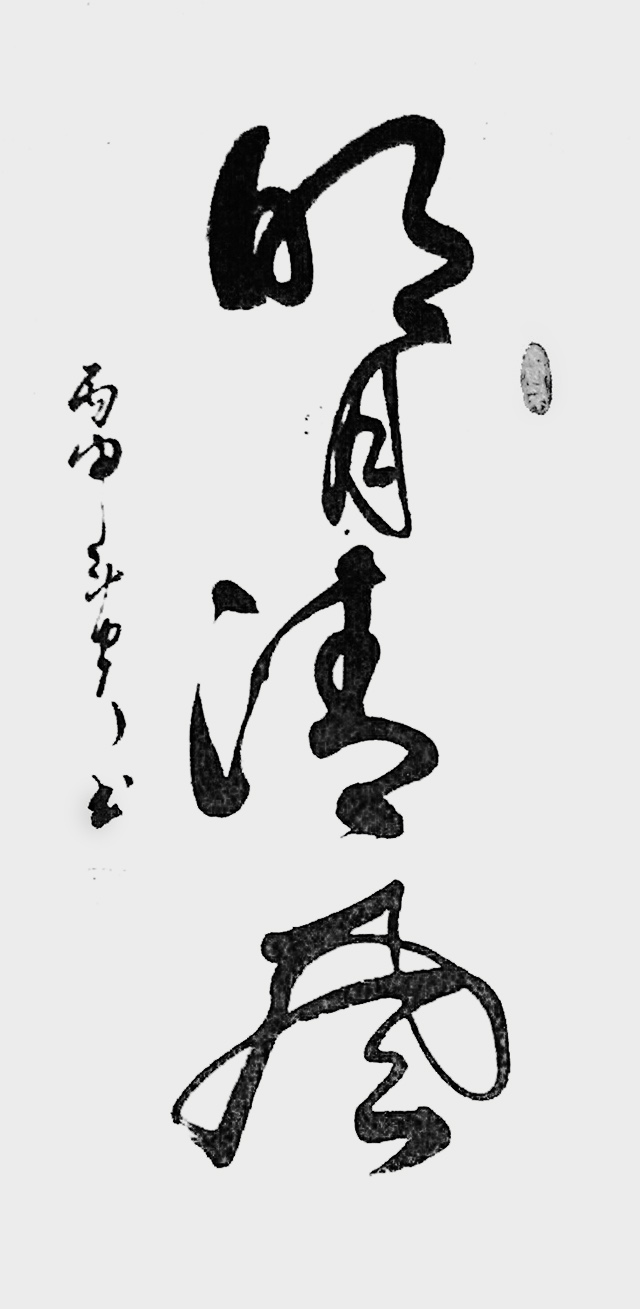 明月清风
丙申年 书